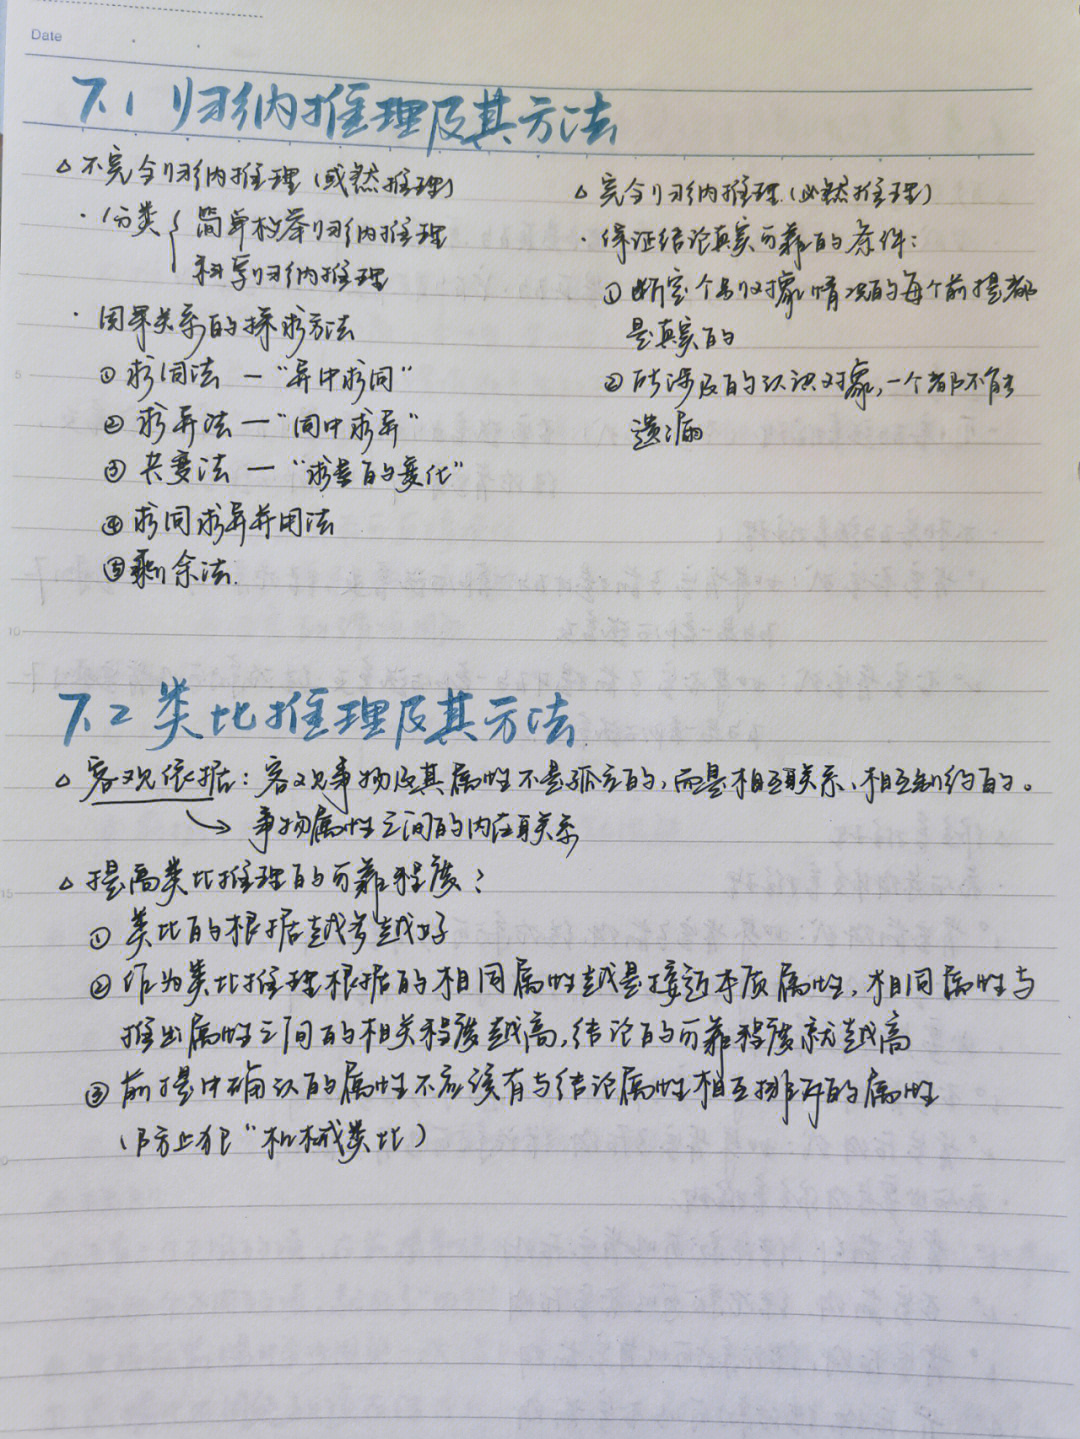 Date
7.1 归纳推理及其方法
△ 不完全归纳推理（或然推理）
· 分类 { 简单枚举归纳推理
科学归纳推理
· 因果关系的探求方法
① 求同法 — “异中求同”
② 求异法 — “同中求异”
③ 共变法 — “求量的变化”
④ 求同求异并用法
⑤ 剩余法.
△ 完全归纳推理（必然推理）
· 保证结论真实可靠的条件：
① 断定个别对象情况的每个前提都
是真实的
② 所涉及的认识对象，一个都不能
遗漏
7.2 类比推理及其方法
△ 客观依据：客观事物及其属性不是孤立的，而是相互联系、相互制约的。
↳ 事物属性之间的内在联系
△ 提高类比推理的可靠程度：
① 类比的根据越多越好
② 作为类比推理根据的相同属性越是接近本质属性，相同属性与
推出属性之间的相关程度越高，结论的可靠程度就越高
③ 前提中确认的属性不应该有与结论属性相互排斥的属性
（防止犯“机械类比）